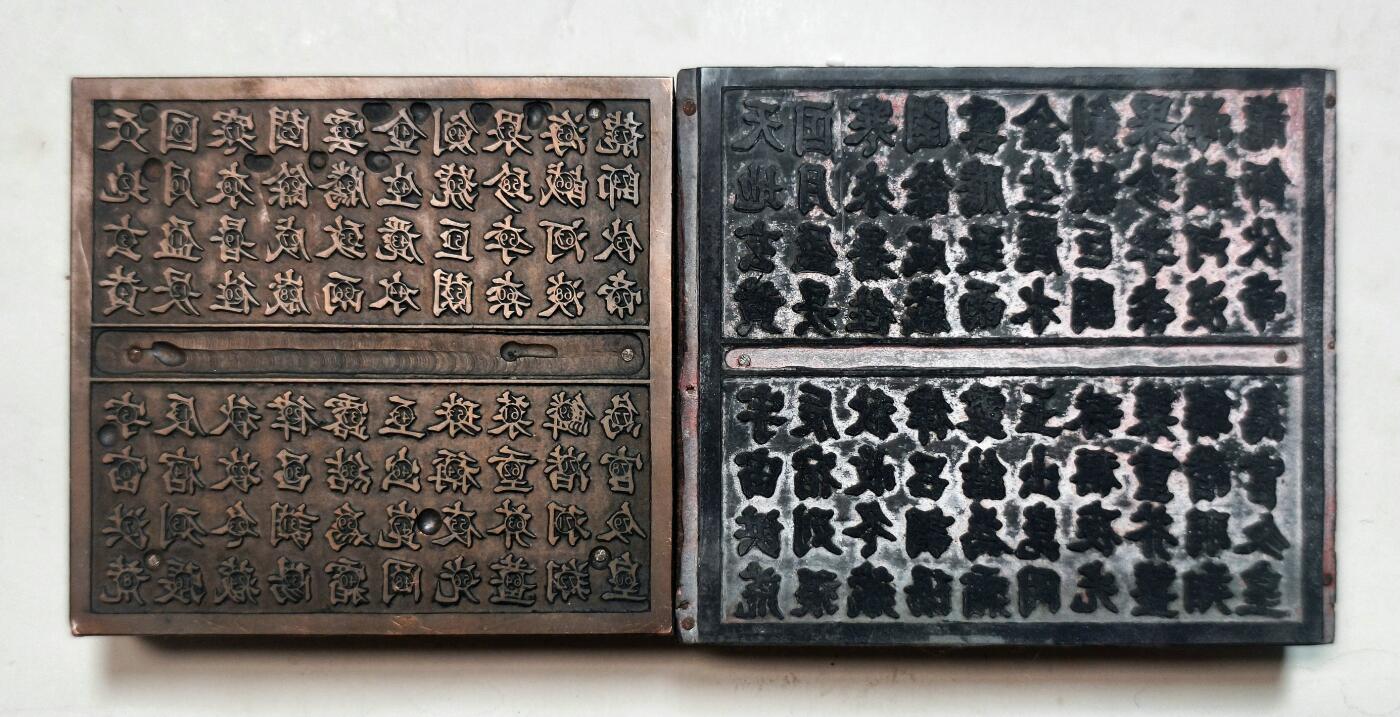 天地玄黃 宇宙洪荒
日月盈昃 辰宿列張
寒來暑往 秋收冬藏
閏餘成歲 律呂調陽
雲騰致雨 露結爲霜
金生麗水 玉出崑岡
劍號巨闕 珠稱夜光
果珍李柰 菜重芥薑
海鹹河淡 鱗潛羽翔
龍師火帝 鳥官人皇
天地玄黃 宇宙洪荒
日月盈昃 辰宿列張
寒來暑往 秋收冬藏
閏餘成歲 律呂調陽
雲騰致雨 露結爲霜
金生麗水 玉出崑岡
劍號巨闕 珠稱夜光
果珍李柰 菜重芥薑
海鹹河淡 鱗潛羽翔
龍師火帝 鳥官人皇